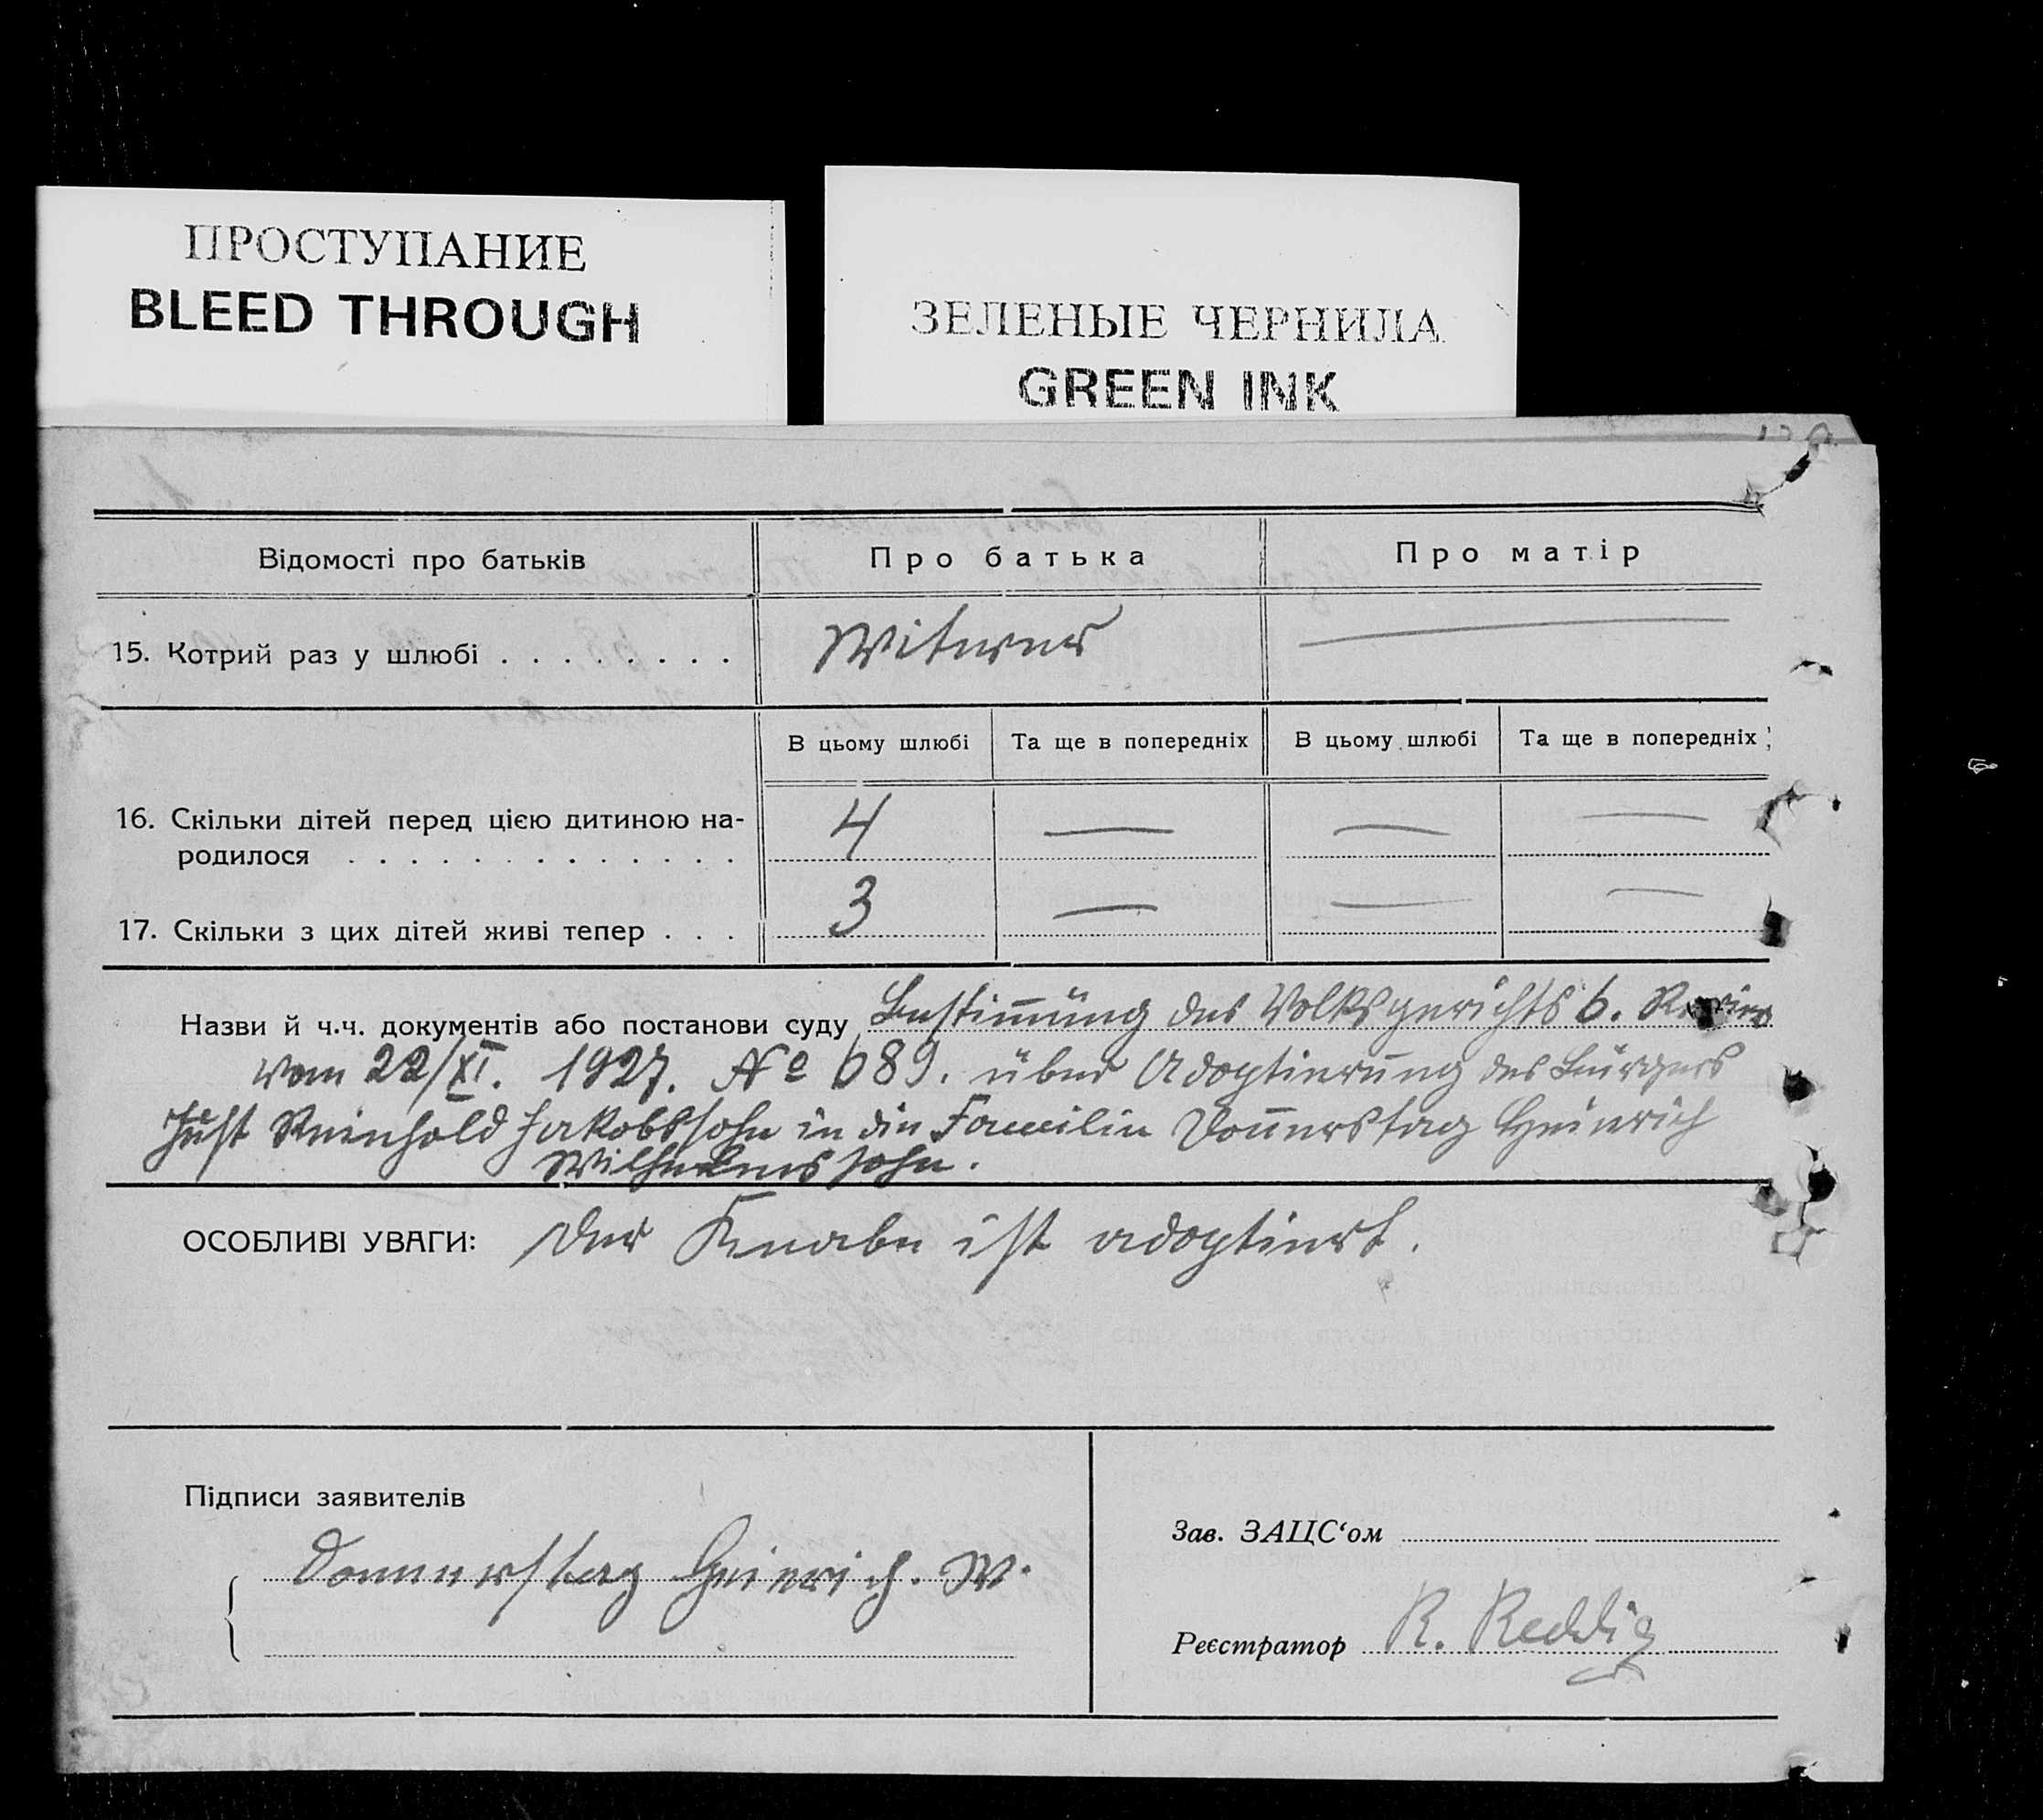 ПРОСТУПАНИЕ
BLEED THROUGH
ЗЕЛЕНЫЕ ЧЕРНИЛА
GREEN INK
Відомості про батьків Про батька Про матір
15. Котрий раз у шлюбі . . . . . . . . Witwer —
В цьому шлюбі Та ще в попередніх В цьому шлюбі Та ще в попередніх
16. Скільки дітей перед цією дитиною на-
родилося . . . . . . . . . . . . . 4 — — —
17. Скільки з цих дітей живі тепер . . . 3 — — —
Назви й ч.ч. документів або постанови суду Bestimmung des Volksgerichts 6.
vom 22/XI. 1927. № 689. über Adoptierung des Bürgers
Just Reinhold Jakobssohn in die Familie Donnerstag Heinrich
Wilhelmssohn.
ОСОБЛИВІ УВАГИ: Der Knabe ist adoptiert.
Підписи заявителів
Donnerstag Heinrich. W.
Зав. ЗАЦС‘ом
Реєстратор R. Reddig